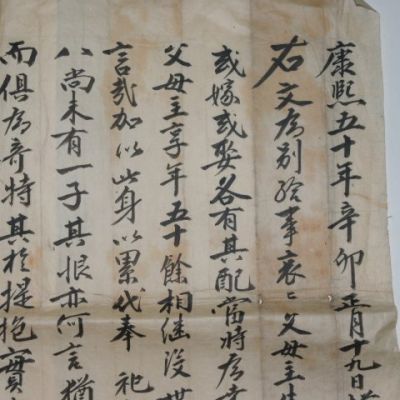 康熙五十年辛卯正月十九日
右文為別給事哀〻父母主生
或嫁或娶各有其配當時為
父母主享年五十餘相継沒
言哉加以此身以累代奉祀
八尚未有一子其恨亦何言猶
而俱為奇特其於提抱實